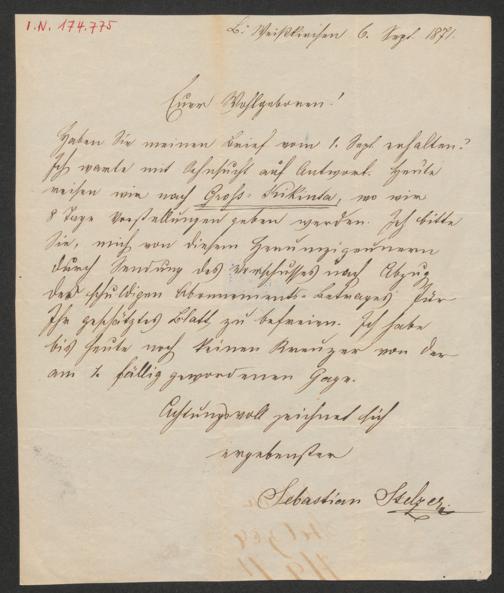 I.N. 174.775
B: Weißkirchen 6. Sept. 1871.
Euer Wohlgeboren!
Haben Sie meinen Brief vom 1. Sept. erhalten?
Ich warte mit Sehnsucht auf Antwort. Heute
reisen wir nach Gross-Kikinta, wo wir
8 Tage Vorstellungen geben werden. Ich bitte
Sie, mich von diesem
durch Sendung des Vorschusses nach Abzug
des schuldigen Abonnements-betrages für
Ihr geschätztes Blatt zu befreien. Ich habe
bis heute noch keinen Kreuzer von der
am 1. fällig gewordenen Gage.
Achtungsvoll zeichnet sich
ergebenster
Sebastian Stelzer.